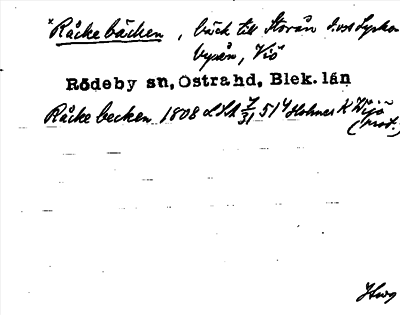 *Råckebäcken, bäck till Storån
byån, Viö
Rödeby sn, Östra hd, Blek. län
Råcke becken 1808 LSA 7/31 51 4 Holmer K Wiö
(prot.)